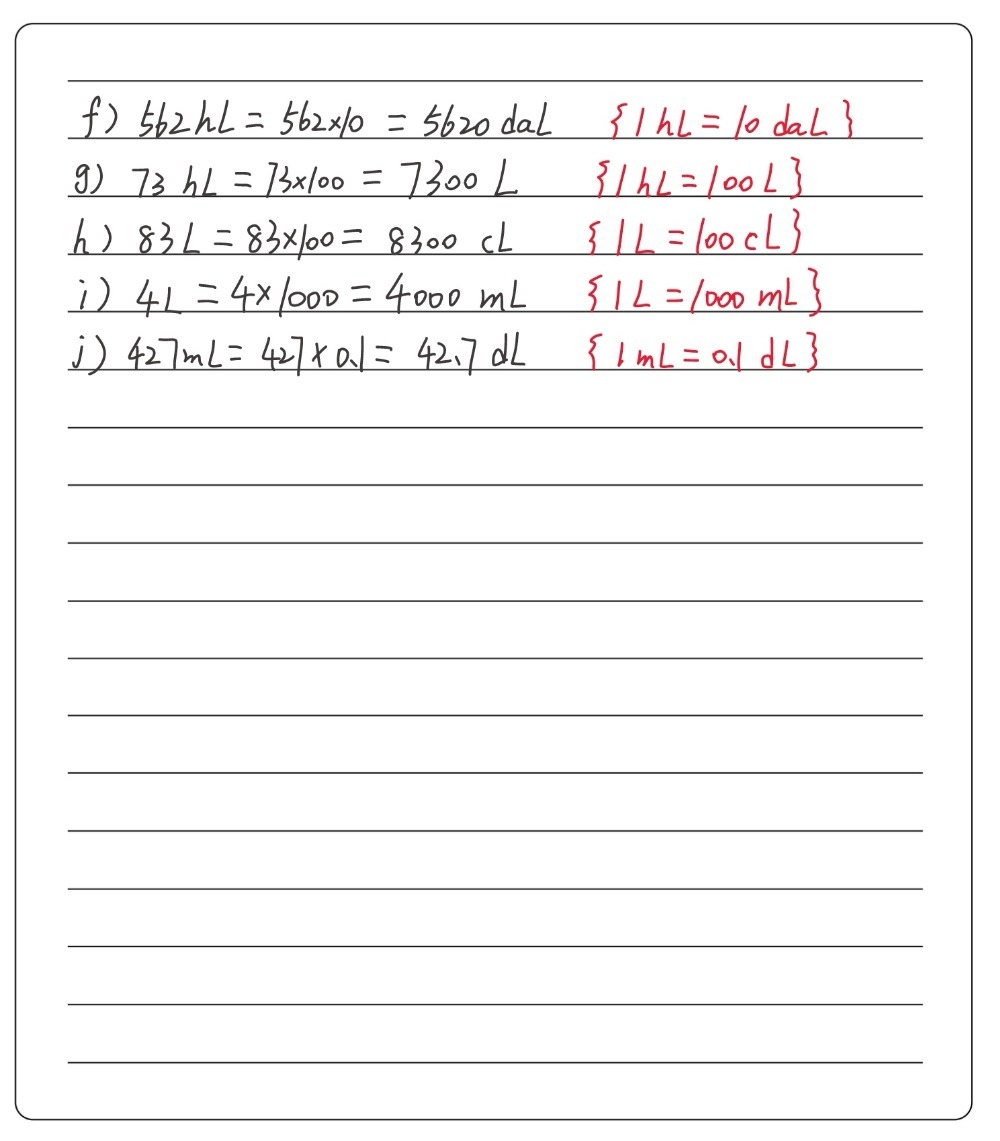 f) 562 hL = 562×10 = 5620 daL {1 hL = 10 daL}
g) 73 hL = 73×100 = 7300 L {1 hL = 100 L}
h) 83 L = 83×100 = 8300 cL {1 L = 100 cL}
i) 4L = 4×1000 = 4000 mL {1 L = 1000 mL}
j) 427 mL = 427 × 0.1 = 42.7 dL {1 mL = 0.1 dL}